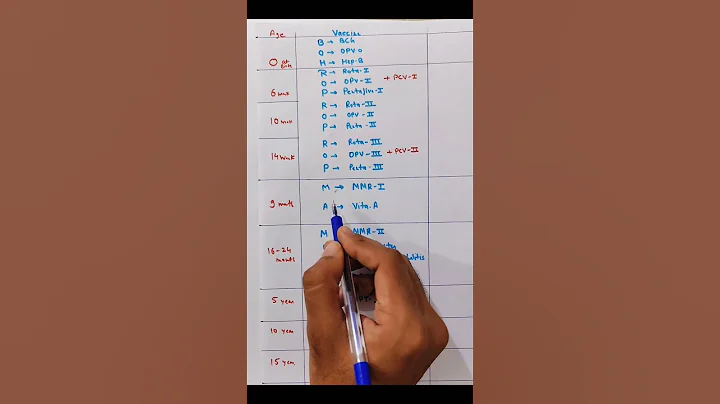 Age Vaccine
0 at Birth B → BCG
O → OPV-0
H → Hep-B
6 Week R → Rota-I
O → OPV-I + PCV-I
P → Pentavalent-I
10 Week R → Rota-II
O → OPV-II
P → Penta-II
14 Week R → Rota-III
O → OPV-III + PCV-II
P → Penta-III
9 month M → MMR-I
A → Vita.A
16-24 month M MMR-II
5 year
10 year
15 year